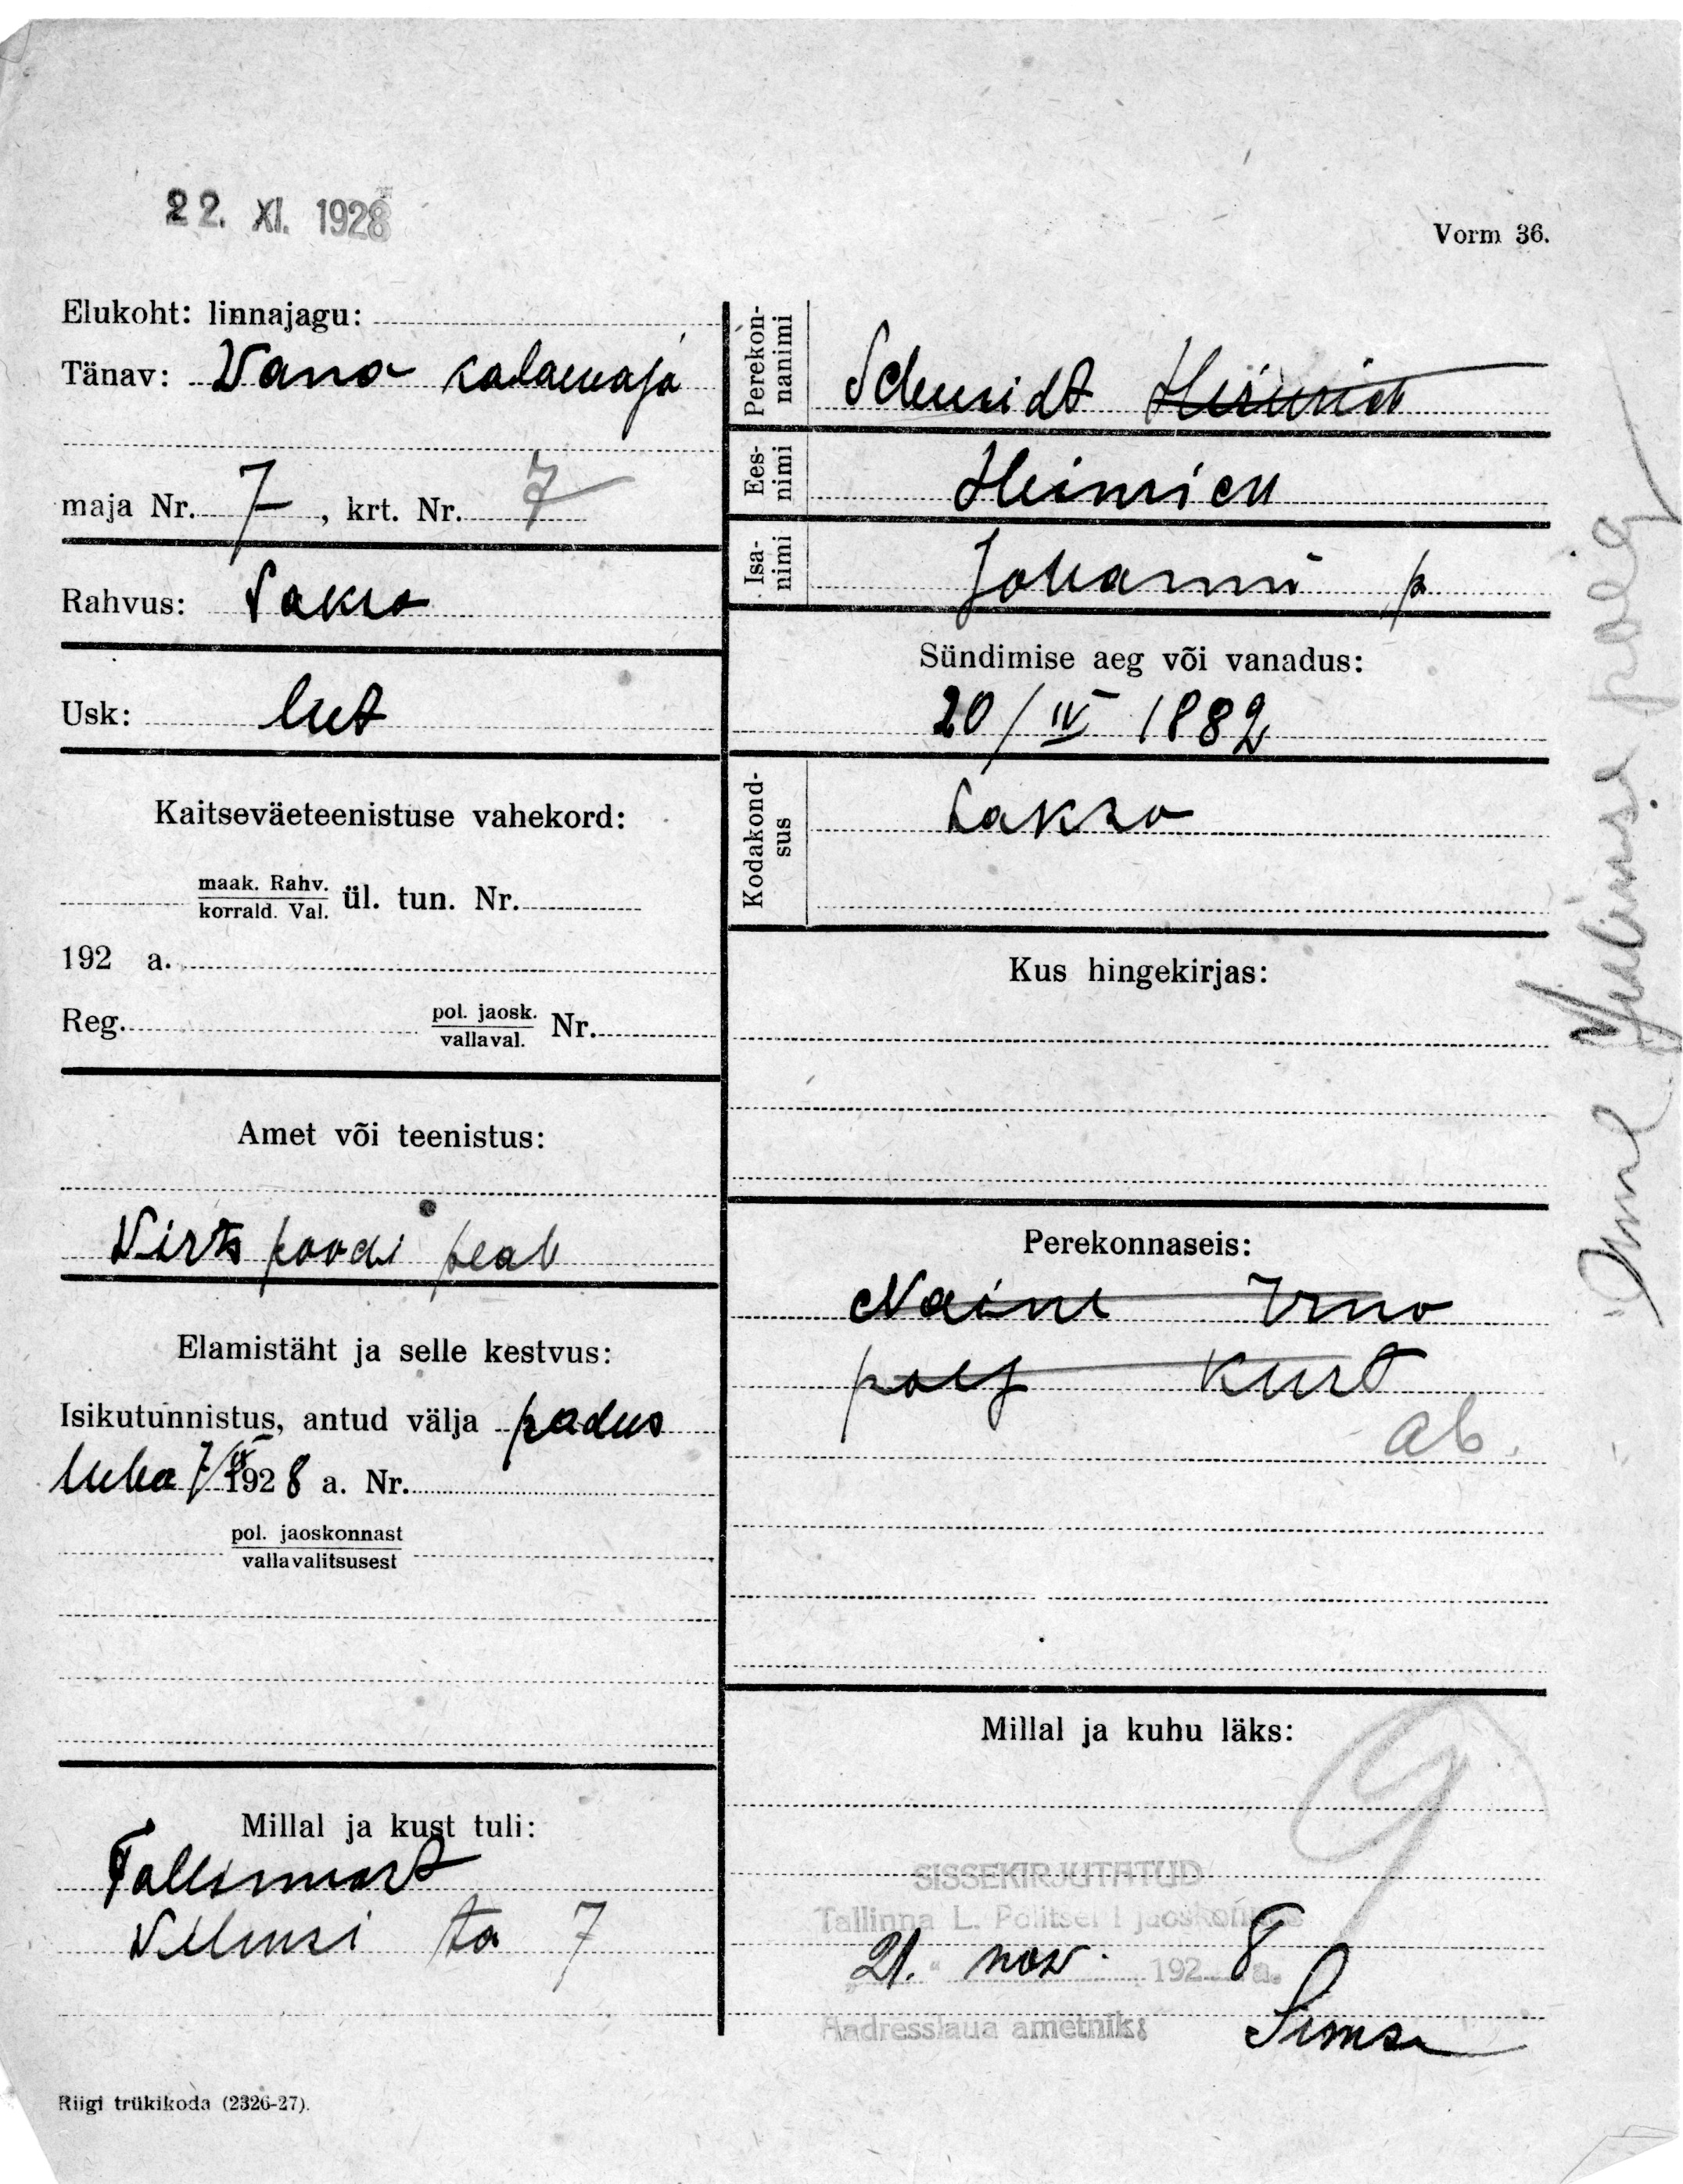 22. XI. 1928
Vorm 36.
Elukoht: linnajagu:
Tänav: Vana kalamaja
maja Nr. 7, krt. Nr. 7
Rahvus: Saksa
Usk: lut
Kaitseväeteenistuse vahekord:
maak. Rahv.
korrald. Val. ül. tun. Nr.
192 a.
Reg. pol. jaosk.
vallaval. Nr.
Amet või teenistus:
Virts poodi peab
Elamistäht ja selle kestvus:
Isikutunnistus, antud välja
luba 7/IX 1928 a. Nr.
pol. jaoskonnast
vallavalitsusest
Millal ja kust tuli:
Tallinnast
ta 7
Perekonnanimi
Schmidt Heinrich
Eesnimi
Heinrich
Isanimi
Johanni p
Sündimise aeg või vanadus:
20/IV 1882
Kodakondsus
Saksa
Kus hingekirjas:
Perekonnaseis:
Naine Irma
poeg Kurt
ab.
Millal ja kuhu läks:
9
SISSEKIRJUTATUD
Tallinna L. Politsei I jaoskonnas
„21." nov. 1928 a.
Aadresslaua ametnik:
poeg
Riigi trükikoda (2326-27).